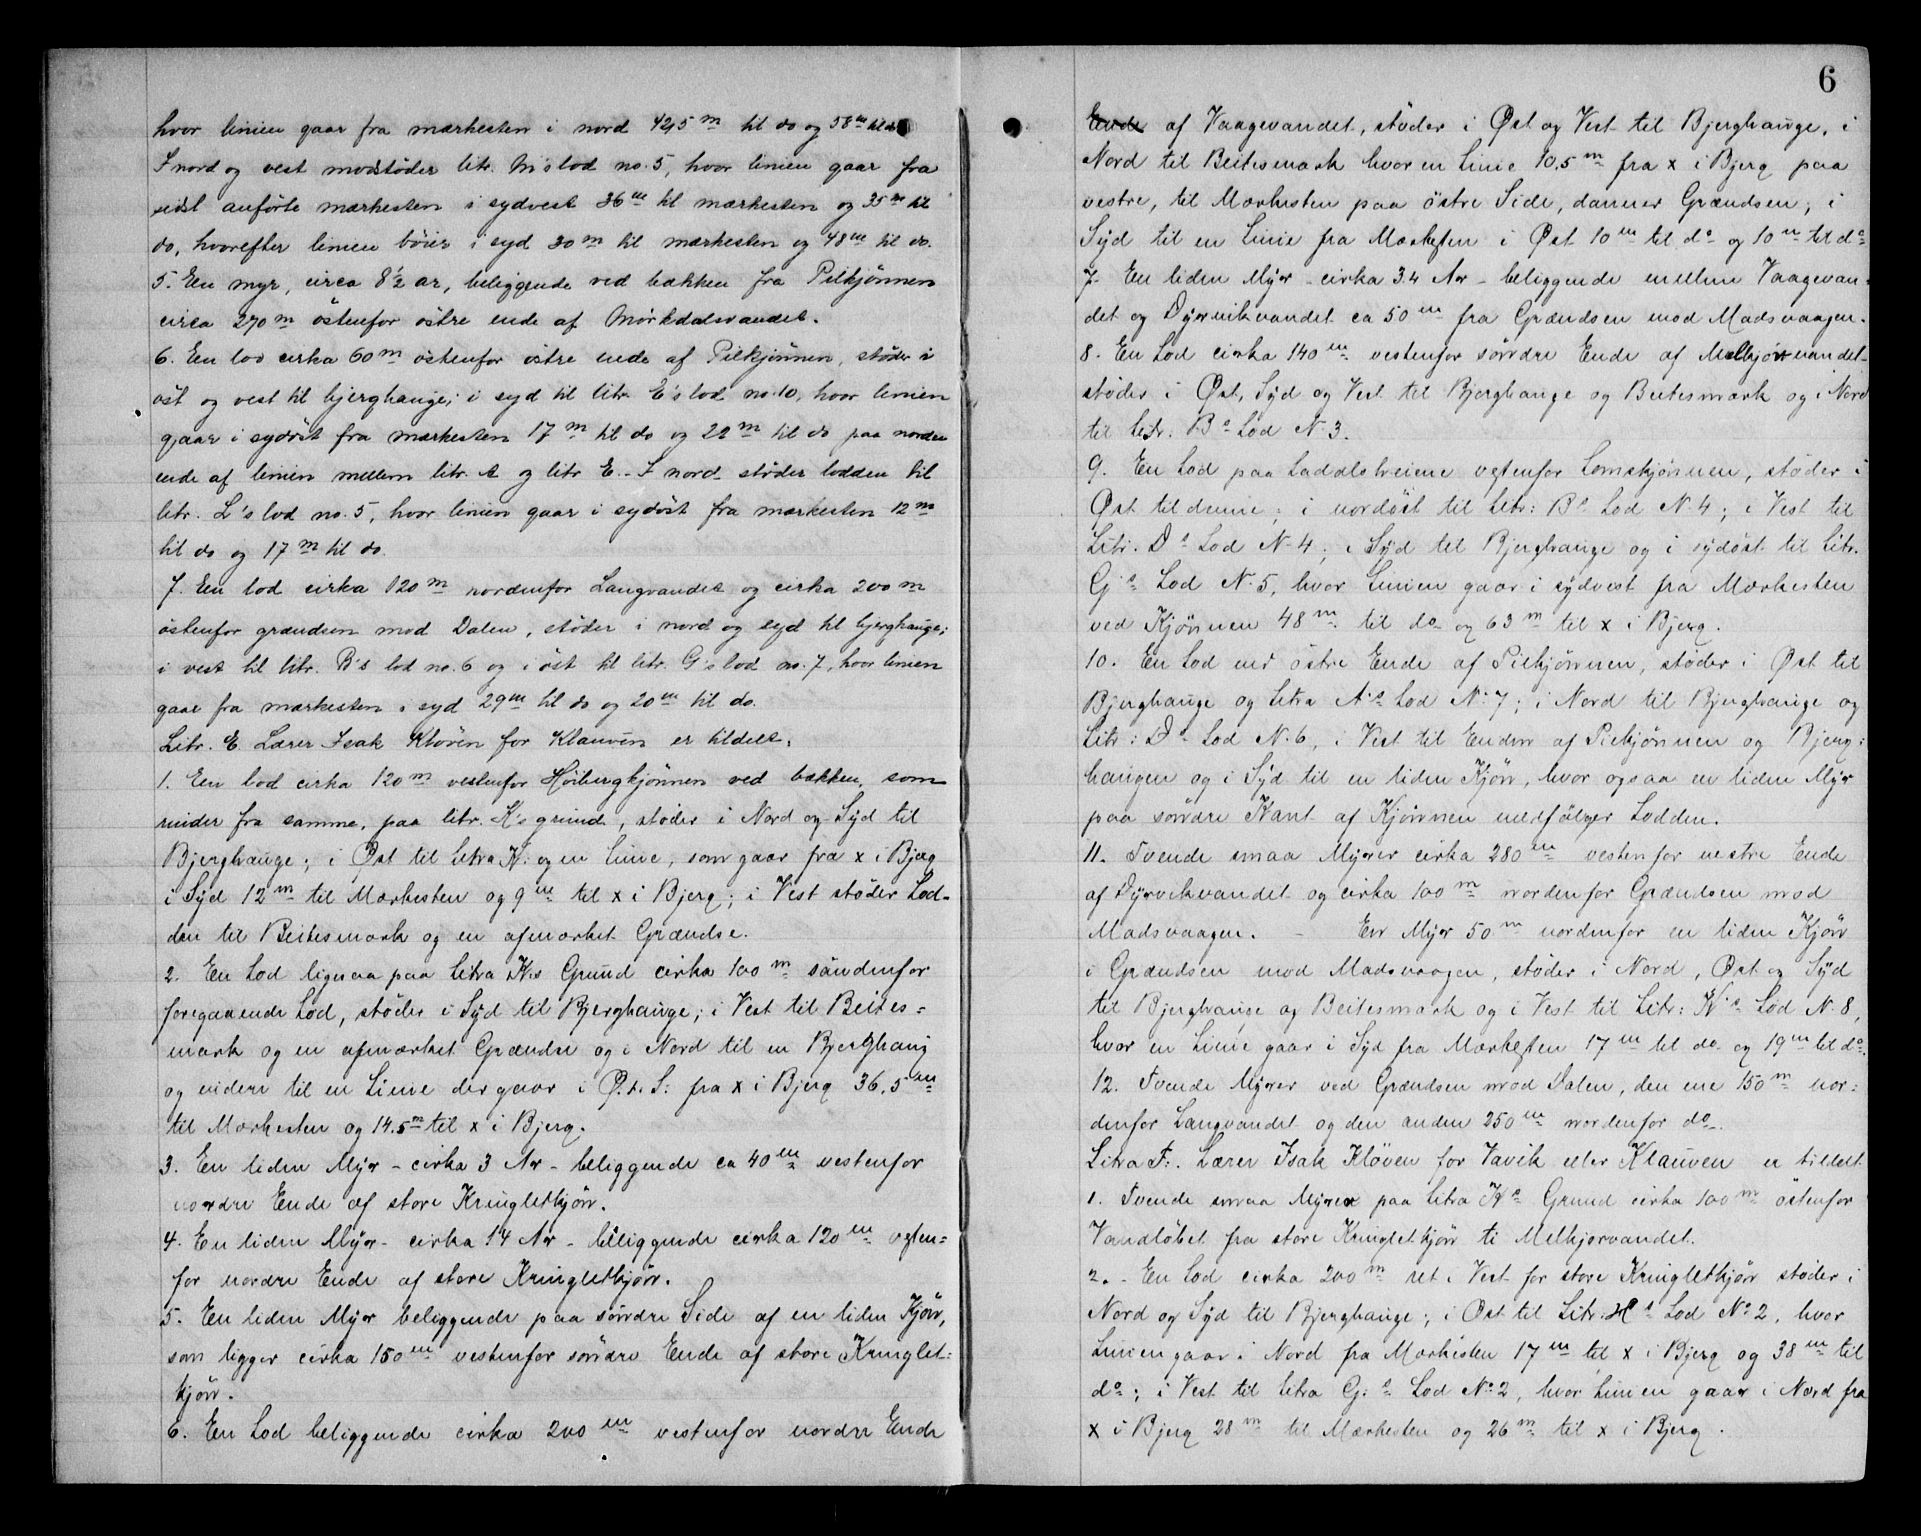 hvor linien gaar fra mærkesten i nord 42,5 m til do og 58 m til do
I nord og vest modstöder litr. M's lod no. 5, hvor linien gaar fra
sidst anförte mærkesten i sydvest 36 m til mærkesten og 35 m til
do, hvorefter linien böier i syd 30 m til mærkesten og 48 m til do.
5. En myr, circa 8½ ar, beliggende ved bækken fra Pilkjönnen
circa 270 m östenfor östre ende af Mörkdalsvandet.
6. En lod cirka 60 m östenfor östre ende af Pilkjönnen, stöder i
öst og vest til bjerghauge; i syd til litr. E's lod no. 10, hvor linien
gaar i sydöst fra mærkesten 17 m til do og 22 m til do paa nordre
ende af linien mellem litr. A og litr E. - I nord stöder lodden til
litr. L's lod no. 5, hvor linien gaar i sydöst fra mærkesten 12 m
til do og 17 m til do.
7. En lod cirka 120 m nordenfor Langvandet og cirka 200 m
östenfor grændsen mod Dalen, stöder i nord og syd til bjerghauge;
i vest til litr. B's lod no. 6 og i öst til litr. G's lod no. 7, hvor linien
gaar fra mærkesten i syd 29 m til do og 20 m til do.
Litr. E. Lærer Isak Klöven for Klauven er tildelt.
1. En lod cirka 120 m vestenfor Höibergkjönnen ved bækken, som
rinder fra samme, paa litr. K's grund, stöder i Nord og Syd til
Bjerghauge; i Øst til Litra K: og en Linie, som gaar fra x i Bjerg
i Syd 12 m til Mærkesten og 9 m til x i Bjerg; i Vest stöder Lod-
den til Beitesmark og en afmærket Grændse.
2. En Lod ligesaa paa Litra K's Grund cirka 100 m söndenfor
foregaaende Lod, stöder i Syd til Bjerghauge; i Vest til Beites=
mark og en afmærket Grændse og i Nord til en Bjerghaug
og videre til en Linie der gaar i Ø.t.S: fra x i Bjerg 36.5 m
til Mærkesten og 14.5 m til x i Bjerg.
3. En liden Myr - cirka 3 Ar - beliggende ca 40 m vestenfor
nordre Ende af store Kringletkjön.
4. En liden Myr - cirka 14 Ar - beliggende cirka 120 m vesten=
for nordre Ende af store Kringletkjön.
5. En liden Myr beliggende paa söndre Side af en liden Kjön,
som ligger cirka 150 m vestenfor söndre Ende af store Kringlet=
kjön.
6. En Lod beliggende cirka 200 m vestenfor nordre Ende
6
Ende af Vaagevandet, stöder i Øst og Vest til Bjerghauge, i
Nord til Beitesmark hvor en Linie 10.5 m fra x i Bjerg paa
vestre, til Mærkesten paa östre Side, danner Grændsen; i
Syd til en Linie fra Mærkesten i Øst 10 m til do og 10 m til do
7. En liden Myr - cirka 3.4 Ar - beliggende mellem Vaagevan=
det og Dyrvikvandet ca 50 m fra Grændsen mod Madsvaagen.
8. En Lod cirka 140 m vestenfor söndre Ende af Melkjörvandet
stöder i Øst, Syd og Vest til Bjerghauge og Beitesmark og i Nord
til Litr. B's Lod N. 3.
9. En Lod paa Laddalsheiene vestenfor Lomskjönnen, stöder i
Øst til denne; i nordöst til Litr: B's Lod N. 4; i Vest til
Litr. D's Lod N. 4; i Syd til Bjerghauge og i sydöst til Litr.
G's Lod N. 5, hvor Linien gaar i sydvest fra Mærkesten
ved Kjönnen 48 m til do og 63 m til x i Bjerg.
10. En Lod ved östre Ende af Pilkjönnen, stöder i Øst til
Bjerghauge og Litra A's Lod N. 7; i Nord til Bjerghauge og
Litr: D's Lod N. 6, i Vest til Enden af Pilkjönnen og Bjerg=
haugen og i Syd til en liden Kjön, hvor ogsaa en liden Myr
paa söndre Kant af Kjönnen medfölger Lodden.
11. Tvende smaa Myrer cirka 280 m vestenfor vestre Ende
af Dyrvikvandet og cirka 100 m nordenfor Grændsen mod
Madsvaagen. - En Myr 50 m nordenfor en liden Kjön
i Grændsen mod Madsvaagen, stöder i Nord, Øst og Syd
til Bjerghauge og Beitesmark og i Vest til Litr: K's Lod N. 8,
hvor en Linie gaar i Syd fra Mærkesten 17 m til do og 19 m til do.
12. Tvende Myrer ved Grændsen mod Dalen, den ene 150 m nor=
denfor Langvandet og den anden 250 m nordenfor do.
Litra F:. Lærer Isak Klöven for Vavik eller Klauven er tildelt
1. Tvende smaa Myrer paa Litra K's Grund cirka 100 m östenfor
Vandlöbet fra store Kringletkjön ti Melkjorvandet.
2. - En Lod cirka 200 m ret i Vest for store Kringletkjön stöder i
Nord og Syd til Bjerghauge; i Øst til Litr: H's Lod No. 2, hvor
Linien gaar i Nord fra Mærkesten 17 m til x i Bjerg og 38 m til
do; i Vest til Litra G:s Lod No. 2, hvor Linien gaar i Nord fra
x i Bjerg 28 m til Mærkesten og 26 m til x i Bjerg.